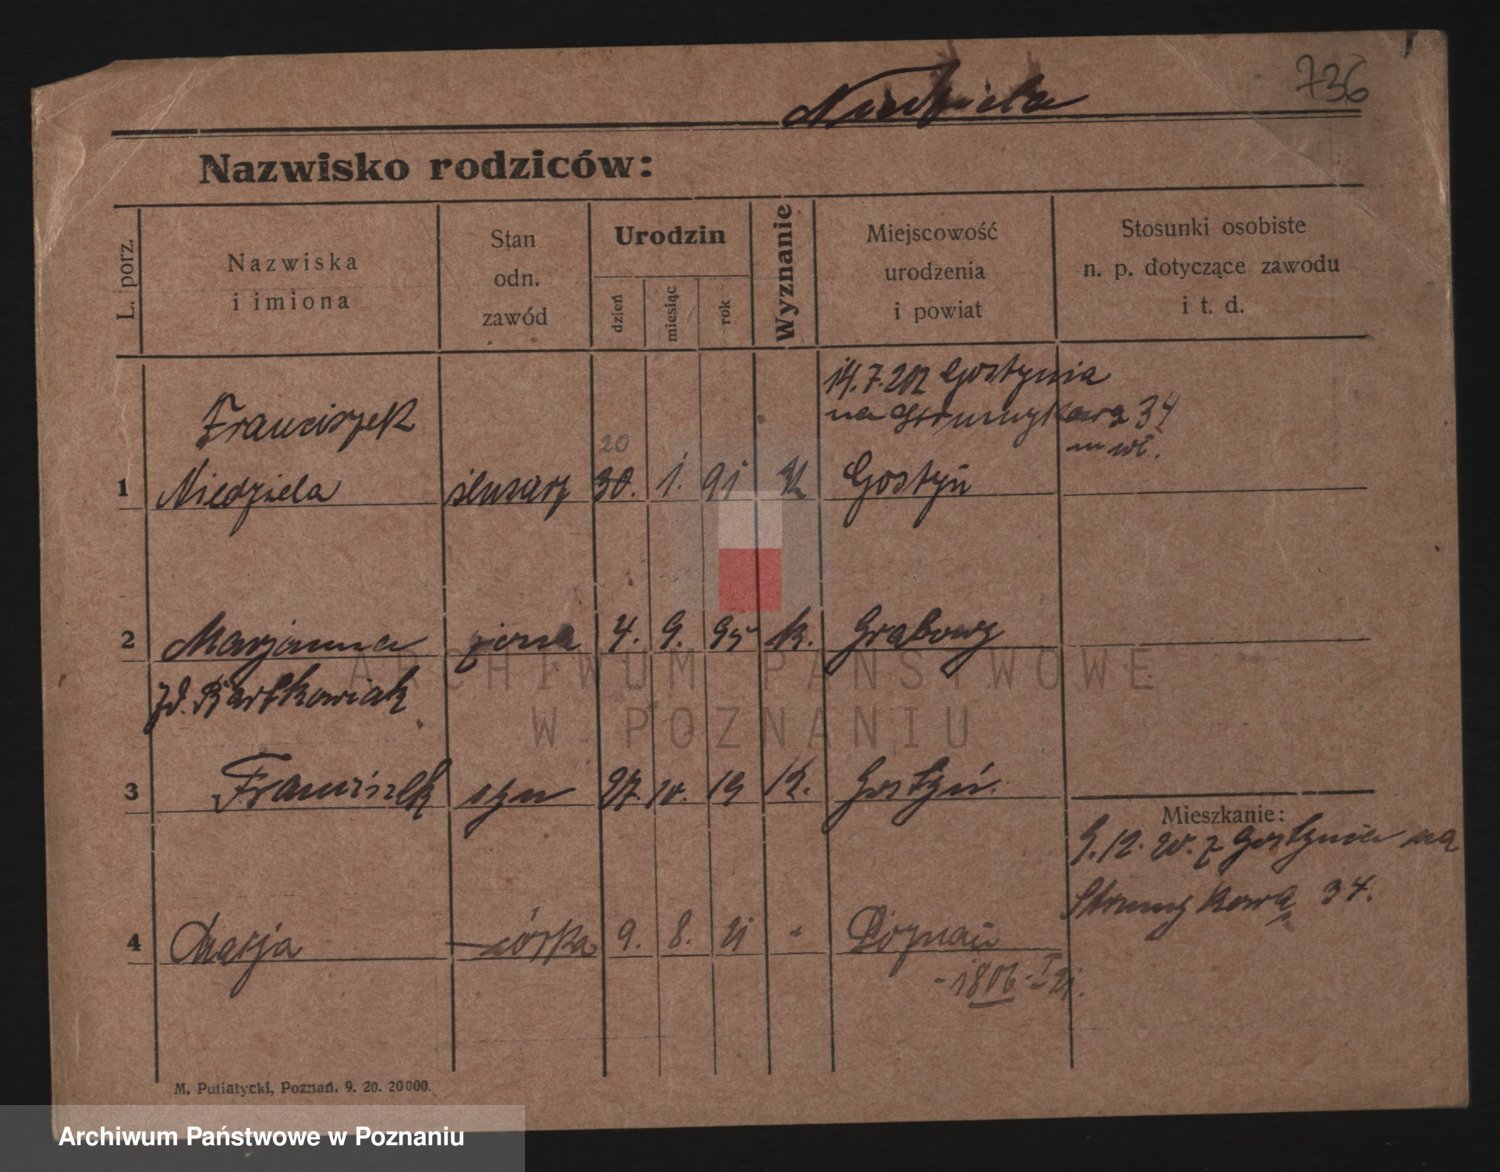 736
Niedziela
Nazwisko rodziców:
L. porz.
Nazwiska
i imiona
Stan
odn.
zawód
Urodzin
dzień
miesiąc
rok
Wyznanie
Miejscowość
urodzenia
i powiat
Stosunki osobiste
n. p. dotyczące zawodu
i t. d.
14.7.20 z Gostynia
na Strumykową 34
m wł.
Franciszek
20
1 Niedziela ślusarz 30. 1. 91 K Gostyń
2 Marjanna żona 4. 9. 95 k. Grabowy
zd. Bartkowiak
3 Franciszek syn 27. 10. 19 K. Gostyń.
Mieszkanie:
9.12.20. z Gostynia na
Strumykową 34.
4 Marja córka 9. 8. 21 " Poznań
-1806- I 21.
M. Putiatycki, Poznań. 9. 20. 20000.
ARCHIWUM PAŃSTWOWE
W POZNANIU
Archiwum Państwowe w Poznaniu